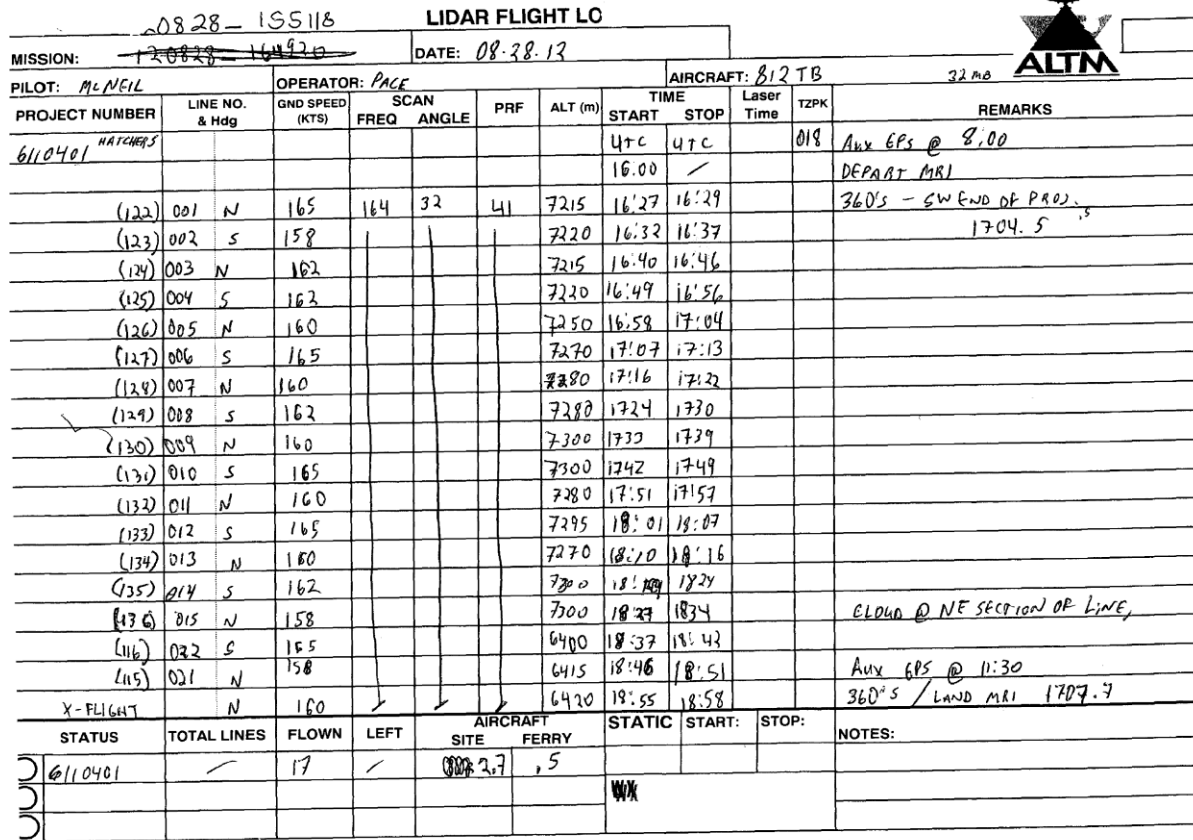 0828-155118 LIDAR FLIGHT LO
MISSION: 120828-164920 DATE: 08.28.12
ALTM
PILOT: McNEIL OPERATOR: PACE AIRCRAFT: 812TB 32 MB
PROJECT NUMBER LINE NO. & Hdg GND SPEED (KTS) SCAN FREQ ANGLE PRF ALT (m) TIME START STOP Laser Time TZPK REMARKS
6110401 HATCHERS UTC UTC 018 Aux GPS @ 8:00
16:00 / DEPART MRI
(122) 001 N 165 164 32 41 7215 16:27 16:29 360's - SW END OF PROJ.
(123) 002 S 158 7220 16:32 16:37 1704.5 .5
(124) 003 N 162 7215 16:40 16:46
(125) 004 S 162 7220 16:49 16:56
(126) 005 N 160 7250 16:58 17:04
(127) 006 S 165 7270 17:07 17:13
(128) 007 N 160 7280 17:16 17:22
(129) 008 S 162 7280 1724 1730
(130) 009 N 160 7300 1733 1739
(131) 010 S 165 7300 1742 1749
(132) 011 N 160 7280 17:51 17:57
(133) 012 S 165 7295 18:01 18:07
(134) 013 N 160 7270 18:10 18:16
(135) 014 S 162 7300 1824
(136) 015 N 158 7300 18:27 1834 CLOUD @ NE SECTION OF LINE,
(116) 022 S 155 6400 18:37 18:42
(115) 021 N 158 6415 18:46 18:51 Aux GPS @ 11:30
X-FLIGHT N 160 6420 18:55 18:58 360's / LAND MRI 1707.7
STATUS TOTAL LINES FLOWN LEFT AIRCRAFT SITE FERRY STATIC START: STOP: NOTES:
6110401 / 17 / 2.7 .5
WX